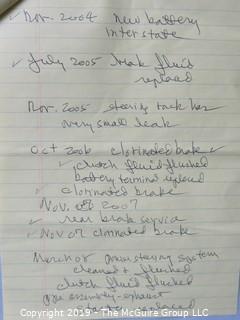 ✓ Nov. 2004 new battery
Interstate
✓ July 2005 brake fluid
replaced
Nov. 2005 steering rack has
very small leak
Oct 2006 clorinated brake ✓
✓ clutch fluid flushed
battery terminal replaced
✓ clorinated brake
Nov. 2007
✓ rear brake service
✓ Nov 07 clorinated brake
March 08 power steering system
cleaned & flushed
clutch fluid flushed
assembly - exhaust
replaced
Copyright 2019 - The McGuire Group LLC